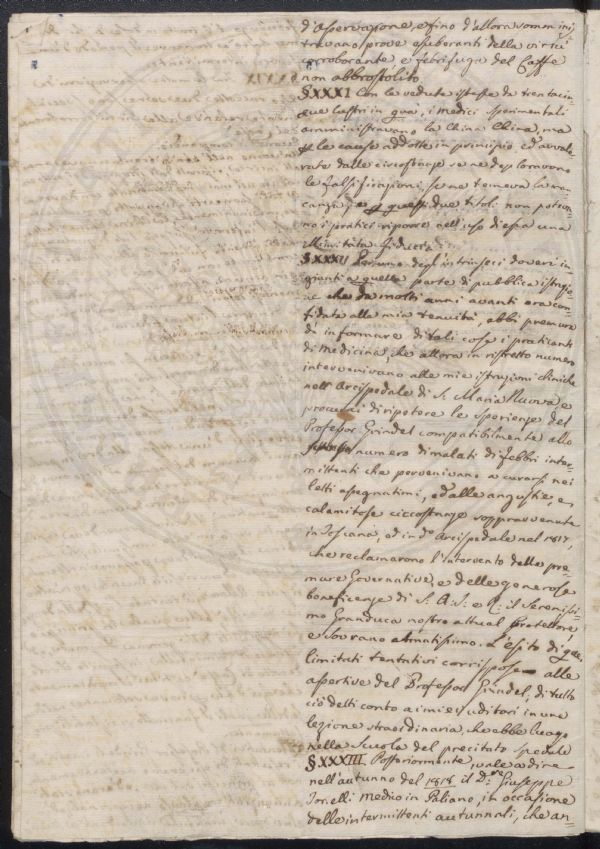 d'osservazione, e fino d'allora sommini
travano prove esuberanti della virtù
corroborante, e febrifuga del Caffè
non abbrostolito
§XXXI Con le vedute istesse da trentacin-
que lustri in qua, i Medici sperimentali
amministravano la China China, ma
le cause addotte in principio, ed avvalo-
rate dalle circostanze se ne deploravano
le falsificazioni, se ne temeva la man
canza, e questi due titoli non poteva-
no i pratici riporre nell'uso di essa una
illimitata fiducia
§XXXII degl'intrinseci doveri in-
giunti a quella parte di pubblica istruzio-
ne che da molti anni avanti era con-
fidata alla mia tenuità, ebbi premura
d' informare di tali cose i praticanti
di Medicina, che allora in ristretto numero
intervenivano alle mie istruzioni cliniche
nell' Arcispedale di S. Maria Nuova, e
procurai di ripetere le sperienze del
Professor Grindel compatibilmente allo
numero di malati di febbri inter-
mittenti che pervenivano a curarsi nei
letti assegnatimi, ed alle angustie, e
calamitose circostanze sopravvenute
in Toscana, ed in do Arcispedale nel 1817,
che reclamarono l'intervento delle pre-
mure Governative, e delle generose
beneficenze di S: A: I: e R: il Serenissi-
mo Granduca nostro attual Protettore,
e Sovrano amatissimo. L'esito di que
limitati tentativi corrispose alle
assertive del Professor Grindel, di tutto
ciò detti conto a' miei uditori in una
lezione straordinaria, che ebbe luogo
nella Scuola del precitato spedale
§XXXIII Posteriormente, vale a dire
nell'autunno del 1818 il Dre Giuseppe
Tonelli Medico in Paliano, in occasione
delle intermittenti autunnali, che an-